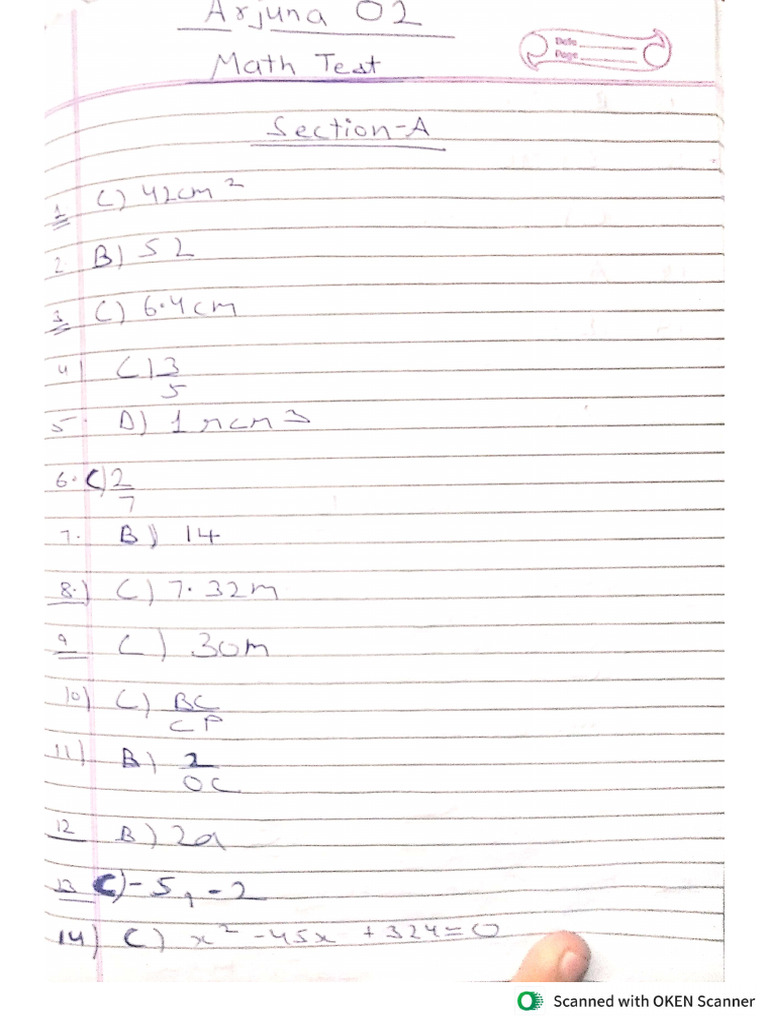 Arjuna 02
Date
Page
Math Test
Section-A
1 C) 42cm²
2. B) 52
3 C) 6.4cm
4) C) 3/5
5. D) 1πcm3
6. C) 2/7
7. B) 14
8.) C) 7.32m
9 C) 30m
10) C) BC/CP
11) B) 2/OC
12 B) 2a
13 C) -5, -2
14) C) x² -45x +324=0
Scanned with OKEN Scanner